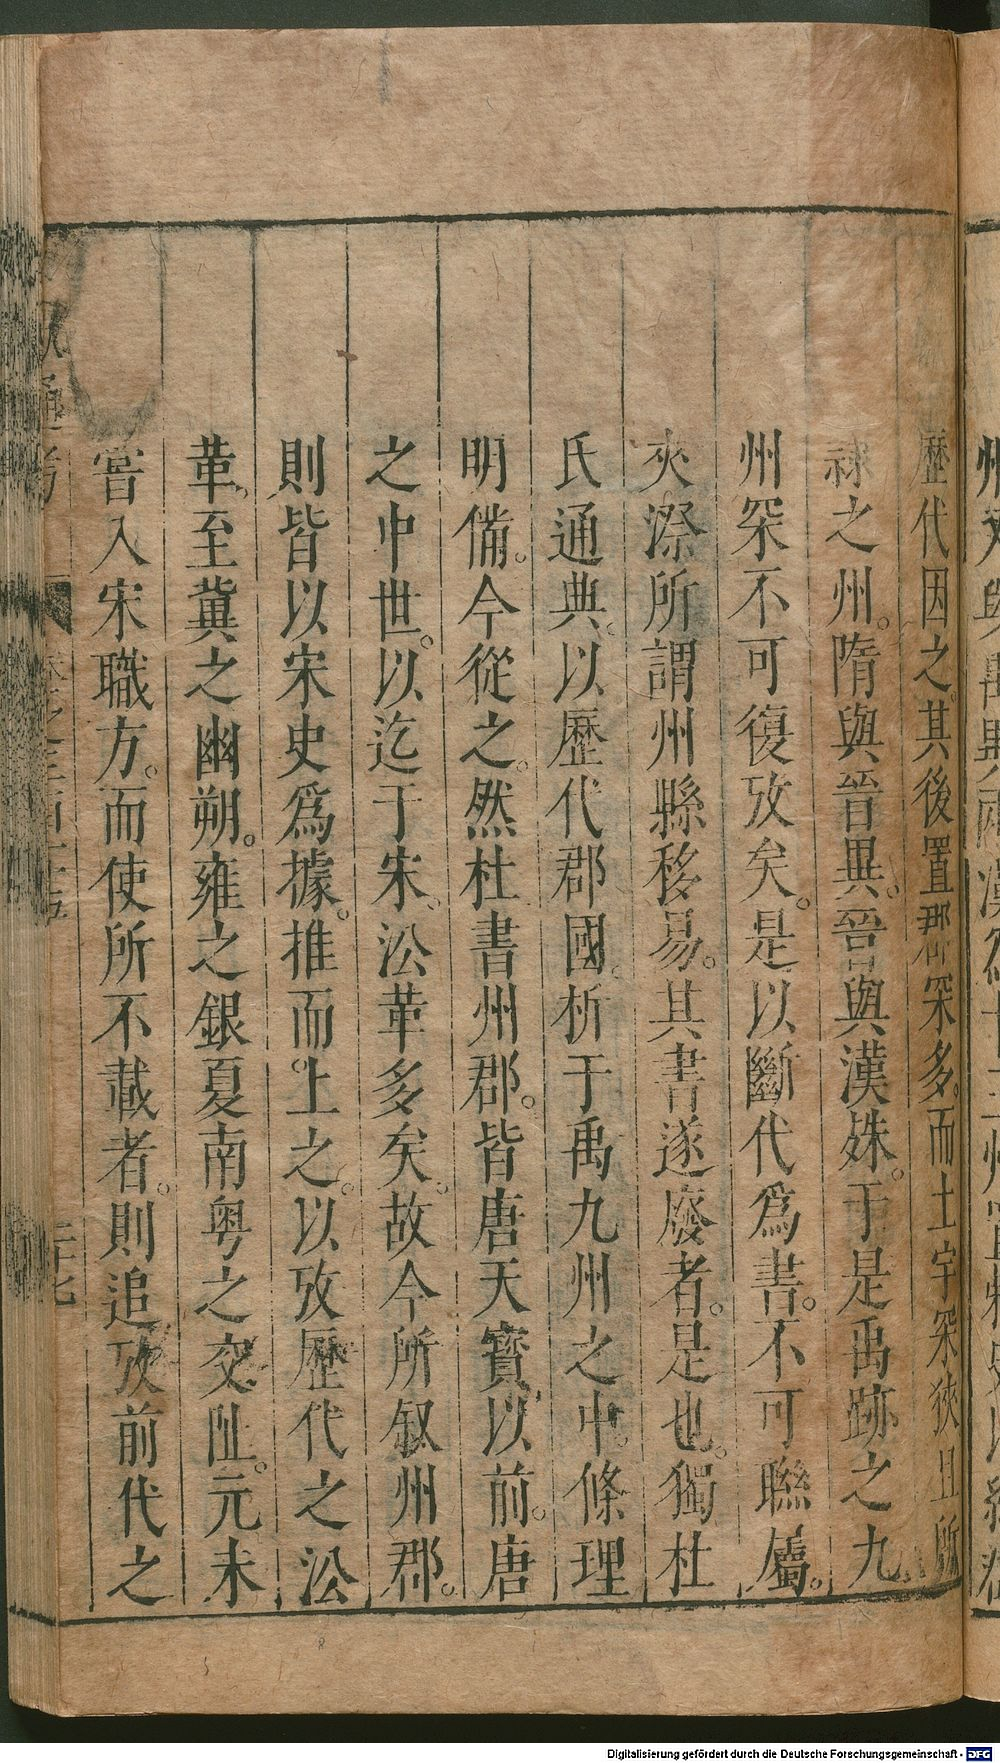 歷代因之。其後置郡罙多。而土宇罙狹。且所
隸之州。隋與晉異。晉與漢姝。于是禹跡之九
州罙不可復攷矣。是以斷代爲書。不可聯屬。
夾漈所謂州縣移易。其書遂廢者。是也。獨杜
氏通典。以歷代郡國。析于禹九州之中。條理
明備。今從之。然杜書州郡。皆唐天寶以前。唐
之中世。以迄于宋。㳂革多矣。故今所叙州郡。
則皆以宋史爲據。推而上之。以攷歷代之㳂
革。至冀之幽朔。雍之銀夏南粤之交阯。元未
嘗入宋職方。而使所不載者。則追攷前代之
通考
二十七
Digitalisierung gefördert durch die Deutsche Forschungsgemeinschaft - DFG